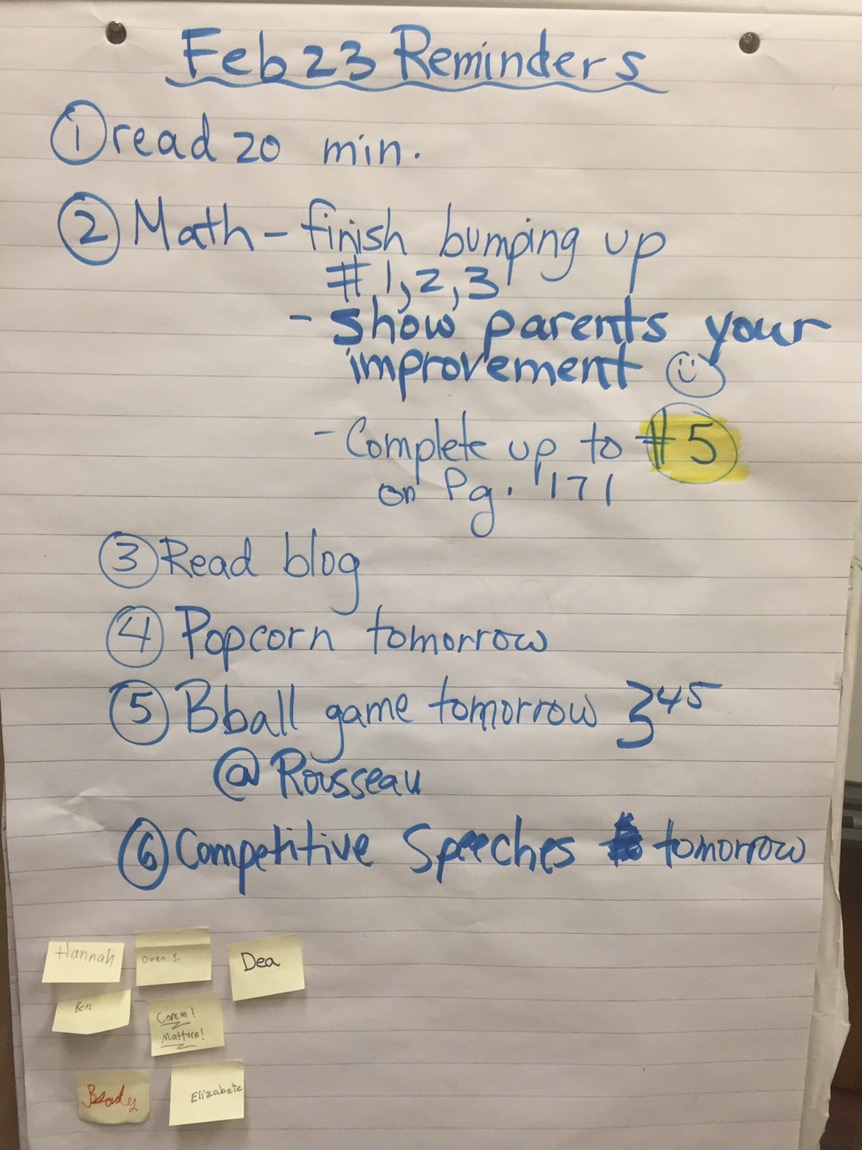 Feb 23 Reminders
① read 20 min.
② Math - finish bumping up
# 1, 2, 3
- show parents your
improvement ☺
- Complete up to #5
on Pg. 171
③ Read blog
④ Popcorn tomorrow
⑤ Bball game tomorrow 3⁴⁵
@ Rousseau
⑥ Competitive Speeches tomorrow
Hannah
Owen S.
Dea
Ben
Brady
Elizabete